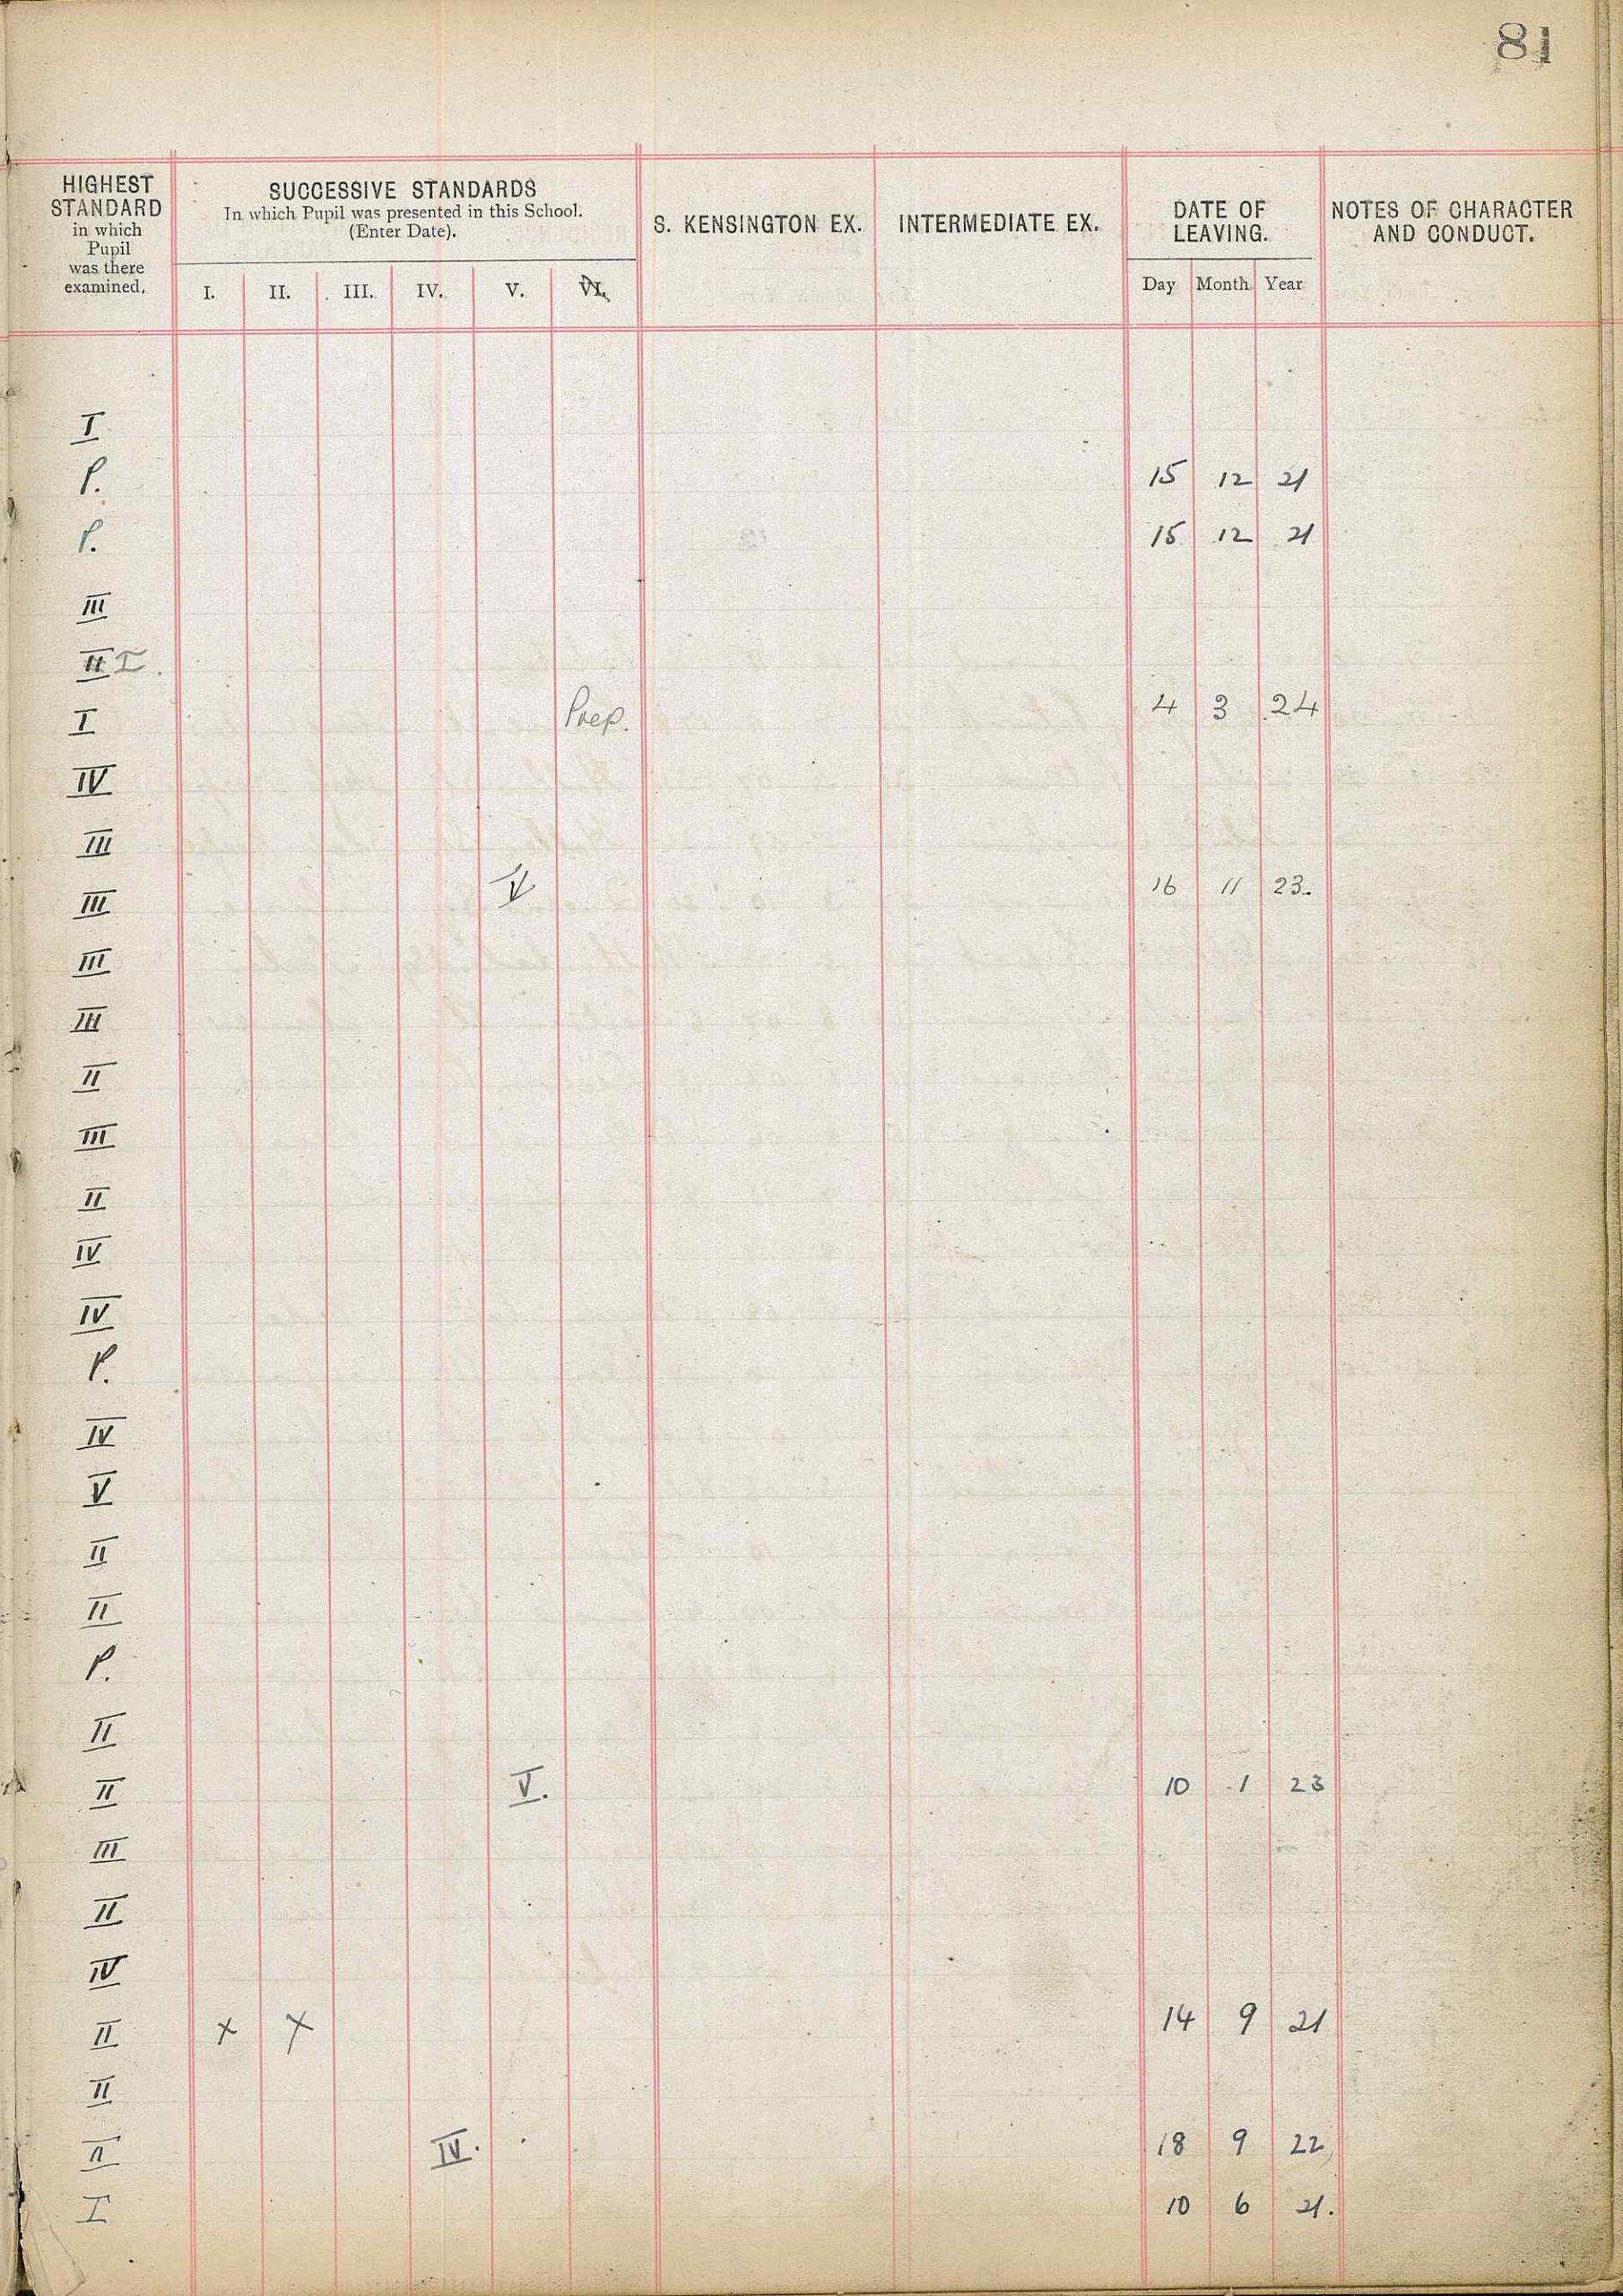 81
HIGHEST STANDARD in which Pupil was there examined.
SUCCESSIVE STANDARDS
In which Pupil was presented in this School.
(Enter Date).
I. II. III. IV. V. VI.
S. KENSINGTON EX.
INTERMEDIATE EX.
DATE OF LEAVING.
Day Month Year
NOTES OF CHARACTER AND CONDUCT.
I
P. 15 12 21
P. 15 12 21
III
II I.
I Prep. 4 3 24
IV
III
III V 16 11 23.
III
III
II
III
II
IV
IV
P.
IV
V
II
II
P.
II
II V. 10 1 23
III
II
IV
II x x 14 9 21
II
II IV. 18 9 22
I 10 6 21.